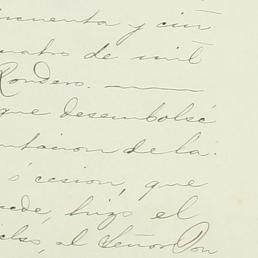 cuenta y cin
cuatro de mil
Rondero.
que desembolsé
ntacion de la
cesion, que
ede, hizo el
al Señor Don